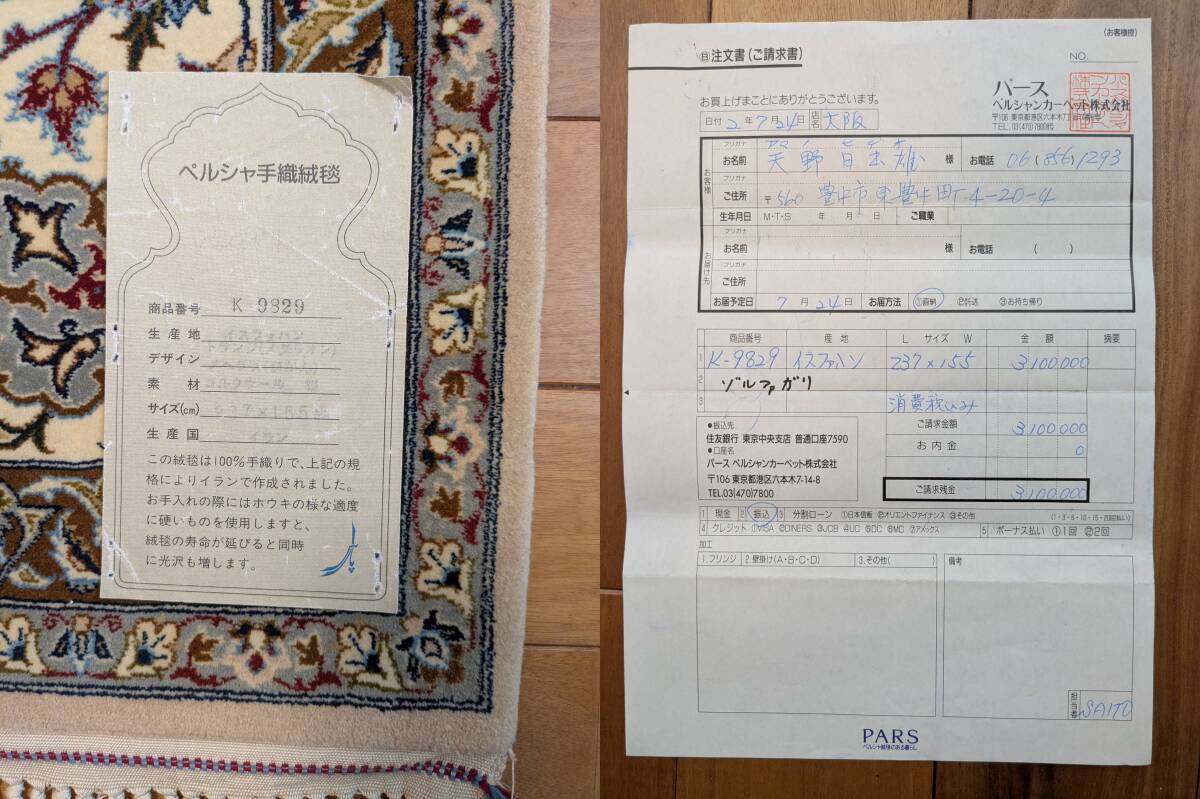 ペルシャ手織絨毯
商品番号 K 9829
生産地 イスファハン
デザイン
素材
サイズ(cm)
生産国 イラン
この絨毯は100%手織りで、上記の規
格によりイランで作成されました。
お手入れの際にはホウキの様な適度
に硬いものを使用しますと、
絨毯の寿命が延びると同時
に光沢も増します。
(お客様控)
注文書(ご請求書)
NO.
お買上げまことにありがとうございます。
パース
ペルシャンカーペット株式会社
〒106 東京都港区六本木7丁目
TEL.03(470)7800代
日付 2年7月24日 店名 大阪
お客様
フリガナ アマノ ヒデオ
お名前 天野日出雄 様 お電話 06(856)1293
フリガナ
ご住所 〒560 豊中市東豊中町4-20-4
生年月日 M・T・S 年 月 日 ご職業
お届け先
フリガナ
お名前 様 お電話 ( )
フリガナ
ご住所
お届予定日 7月24日 お届方法 ①直納 ②託送 ③お持ち帰り
商品番号 産地 L サイズ W 金額 摘要
1 K-9829 イスファハン 237×155 3,100,000
2 ゾルファガリ
3 消費税込み
●振込先
住友銀行 東京中央支店 普通口座7590
●口座名
パース ペルシャンカーペット株式会社
〒106 東京都港区六本木7-14-8
TEL.03(470)7800
ご請求金額 3,100,000
お内金 0
ご請求残金 3,100,000
1 現金 2 振込 3 分割ローン ①日本信販 ②オリエントファイナンス ③その他 (1・3・6・10・15・回払い)
4 クレジット ①VISA ②DINERS ③JCB ④UC ⑤DC ⑥MC ⑦アメックス 5 ボーナス払い ①1回 ②2回
加工
1.フリンジ 2.壁掛け(A・B・C・D) 3.その他( )
備考
担当者 SAITO
PARS
ペルシャ絨毯のある暮らし